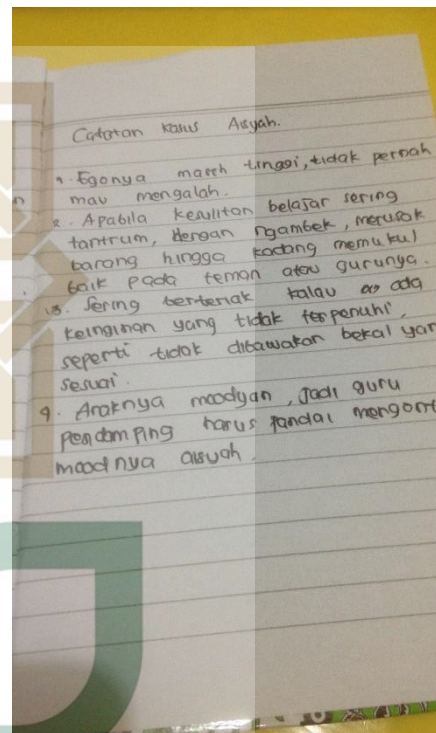 Catatan kasus Aisyah.
1. Egonya masih tinggi, tidak pernah
mau mengalah.
2. Apabila kesulitan belajar sering
tantrum, dengan ngambek, merusak
barang hingga kadang memukul
baik pada teman atau gurunya.
3. Sering berteriak kalau ada
keinginan yang tidak terpenuhi,
seperti tidak dibawakan bekal yan
sesuai.
4. Anaknya moodyan, Jadi guru
pendamping harus pandai mengont
moodnya aisyah.